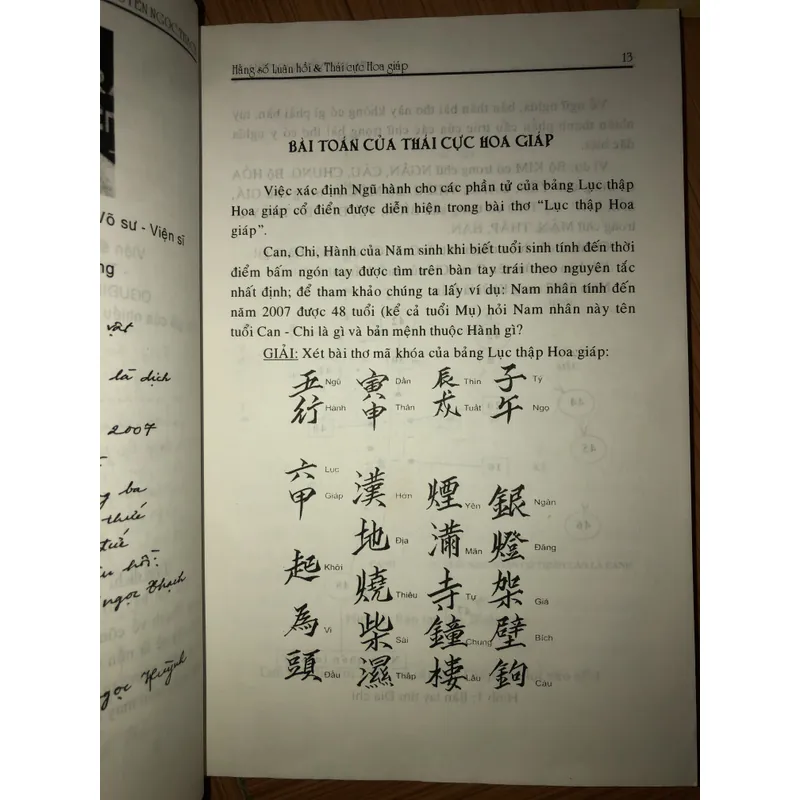 YỄN NGỌC THẠCH
Võ sư - Viện sĩ
là dịch
2007
ng ba
ngọc thạch
Hằng số Luân hồi & Thái cực Hoa giáp
13
BÀI TOÁN CỦA THÁI CỰC HOA GIÁP
Việc xác định Ngũ hành cho các phần tử của bảng Lục thập
Hoa giáp cổ điển được diễn hiện trong bài thơ “Lục thập Hoa
giáp”.
Can, Chi, Hành của Năm sinh khi biết tuổi sinh tính đến thời
điểm bấm ngón tay được tìm trên bàn tay trái theo nguyên tắc
nhất định; để tham khảo chúng ta lấy ví dụ: Nam nhân tính đến
năm 2007 được 48 tuổi (kể cả tuổi Mụ) hỏi Nam nhân này tên
tuổi Can - Chi là gì và bản mệnh thuộc Hành gì?
GIẢI: Xét bài thơ mã khóa của bảng Lục thập Hoa giáp:
五 Ngũ 寅 Dần 辰 Thìn 子 Tý
行 Hành 申 Thân 戌 Tuất 午 Ngọ
六 Lục
甲 Giáp 漢 Hơn 煙 Yên 銀 Ngân
地 Địa 滿 Mãn 燈 Đăng
起 Khởi 燒 Thiêu 寺 Tự 架 Giá
為 Vi 柴 Sài 鐘 Chung 壁 Bích
頭 Đầu 濕 Thấp 樓 Lâu 鉤 Câu